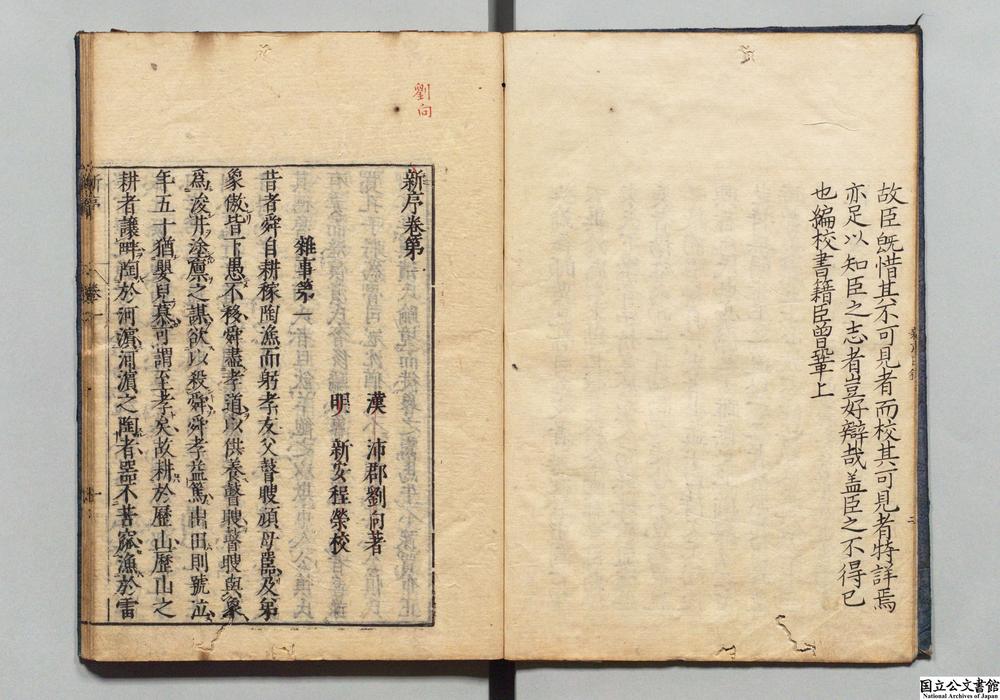 故臣既惜其不可見者而校其可見者特詳焉
亦足以知臣之志者豈好辯哉盖臣之不得已
也編校書籍臣曾鞏上
劉向
新序卷第一
漢 沛郡劉向著
明 新安程榮校
雜事第一
昔者舜自耕稼陶漁而躬孝友父瞽瞍頑母嚚及弟
象傲皆下愚不移舜盡孝道以供養瞽瞍瞽瞍與象
為浚井塗廪之謀欲以殺舜舜孝益篤出田則號泣
年五十猶嬰兒慕可謂至孝矣故耕於歷山歷山之
耕者讓畔陶於河濱河濱之陶者器不苦窳漁於雷
新序 卷一 一
国立公文書館
National Archives of Japan